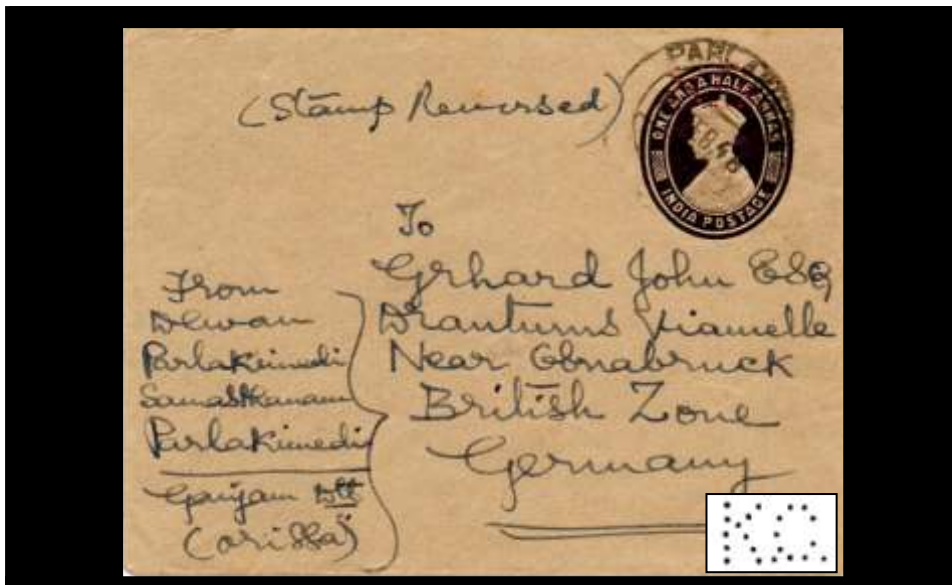 (Stamp Reversed)
ONE AND A HALF ANNAS
INDIA POSTAGE
To
Grhard John ESQ
Near Osnabruck
British Zone
Germany
From
Dewan
Parlakimedi
Samasthanam
Parlakimedi
Ganjam Dtt
(orissa)